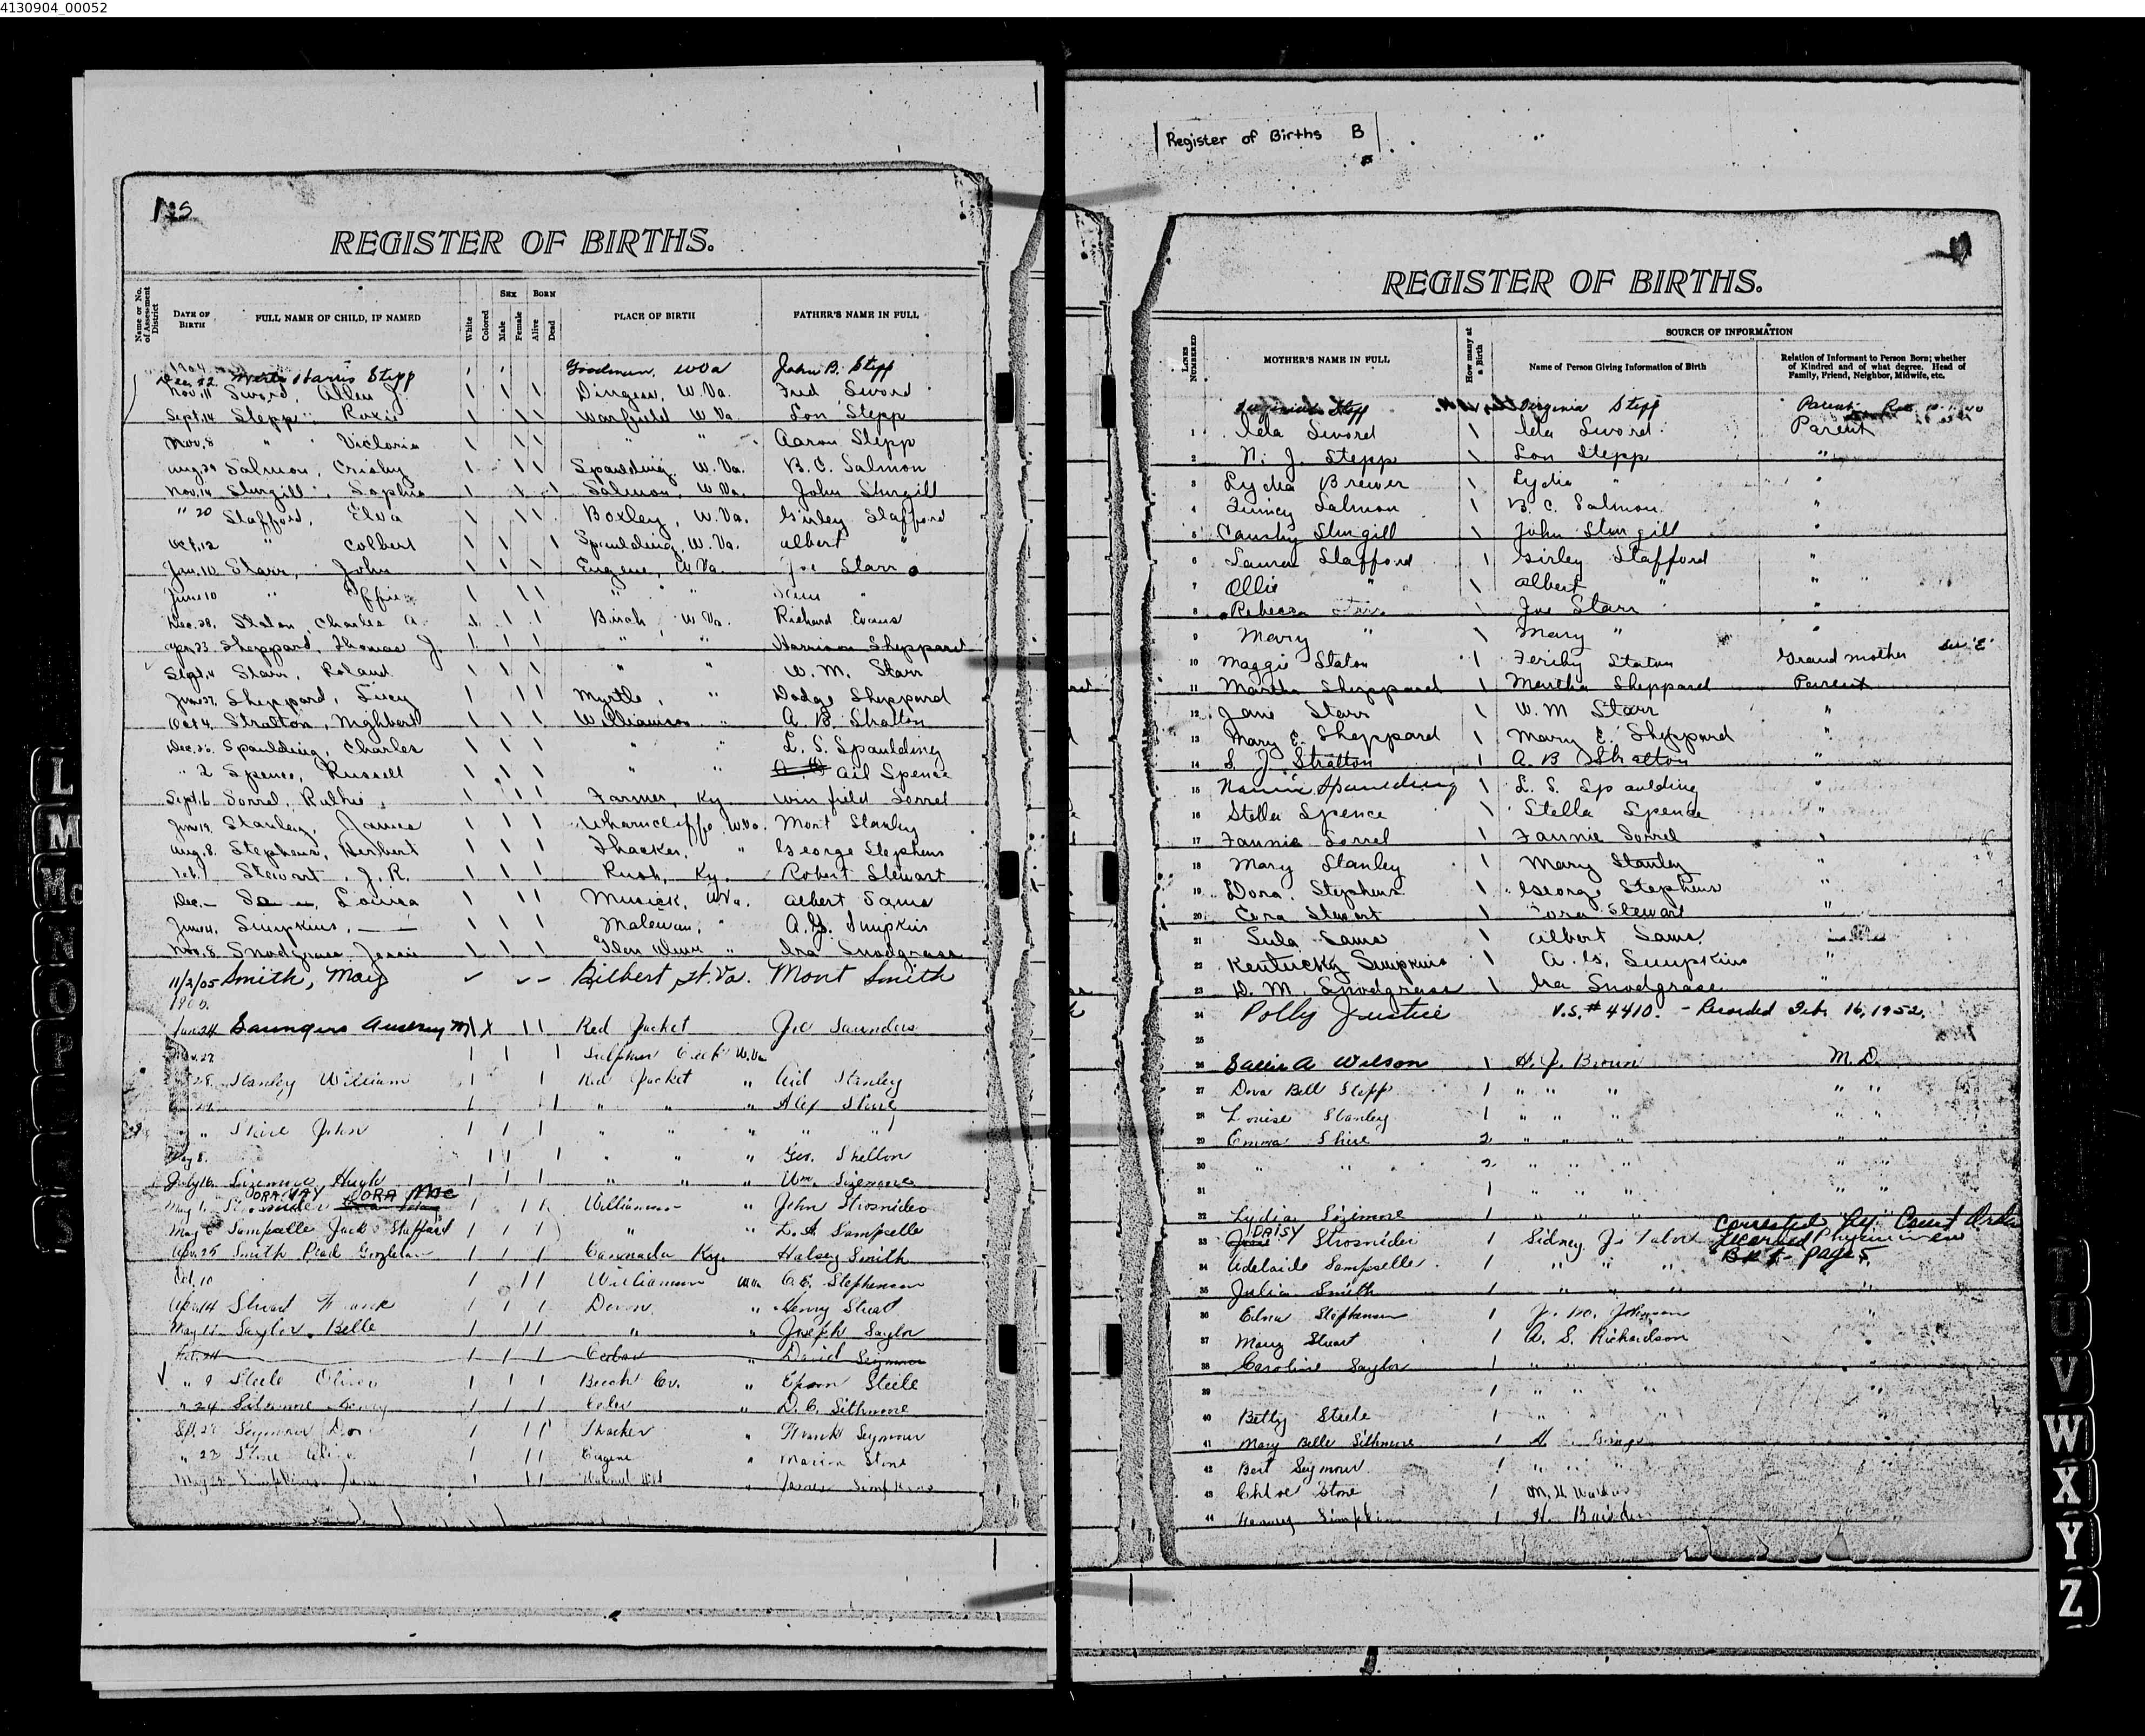 4130904_00052
Register of Births B
REGISTER OF BIRTHS.
Name or No. of Assessment District
DATE OF BIRTH
FULL NAME OF CHILD, IF NAMED
White
Colored
SEX
Male
Female
BORN
Alive
Dead
PLACE OF BIRTH
FATHER'S NAME IN FULL
1904
Dec. 22 Harris Stepp Goodman, W Va John B. Stepp
Nov. 11 Sword, Allen J. Dingess, W. Va. Fred Sword
Sept. 14 Stepp, Roxie Warfield W. Va. Lon Stepp
Nov. 8 " Victoria " " Aaron Stepp
Aug. 20 Salmon, Crisby Spaulding, W. Va. B. C. Salmon
Nov. 14 Sturgill, Sophia Salmon, W. Va. John Sturgill
" 20 Stafford, Elva Boxley, W. Va. Girley Stafford
Oct. 12 " Colbert Spaulding, W. Va. Albert "
Jan. 10 Starr, John Eugene, W. Va. Joe Starr
June 10 " Effie " "
Dec. 28. Staton, Charles A. Birch, W. Va. Richard Evans
Apr. 23 Sheppard, Thomas J. " " Harrison Sheppard
Sept. 4 Starr, Roland " " W. M. Starr
June 27, Sheppard, Lucy Myrtle, " Dodge Sheppard
Oct 4. Stratton, Nighbert Williamson " A. B. Stratton
Dec. 26. Spaulding, Charles " " L. S. Spaulding
" 2 Spence, Russell " " Ail Spence
Sept. 6 Sorrel, Ruthie, Farmer, Ky Winfield Sorrel
June 19. Stanley, James Wharncliffe, W. Va. Mont Stanley
Aug. 8. Stephens, Herbert Thacker, " George Stephens
Feb. 7 Stewart, J. R. Rush, Ky. Robert Stewart
Dec. — Louisa Musick, W Va. Albert Sams
June 4. Simpkins, — — Matewan, " A. G. Simpkins
Nov. 8. Snodgrass, Jessie Glen Alum " Ira Snodgrass
11/2/05 Smith, May Gilbert W. Va. Mont Smith
1905.
Jan 24 Saunders M Red Jacket Joe Saunders
Nov. 27 Sulphur Creek W. Va
28. Stanley William Red Jacket " Aid Stanley
" " " Alex Shire
" Shire John " " " " "
May 8. " " " Geo. Shelton
July 16. Sizemore Hugh " " " Wm. Sizemore
ORA MAY CORA Mae
May 1. Strosnider Williamson " John Strosnider
May 6 Sampselle Jack Shepfard " " L. A. Sampselle
Apr. 25 Smith Pearl Canada Ky. Halsey Smith
Oct. 10 Williamson W Va C. E. Stephenson
Apr. 14 Stuart Frank Devon, " Henry Stuart
May 11 Saylor, Belle " " Joseph Saylor
Oct. 24 Cedar " David Seymour
" 9 Steele Oliver Beech Cr. " Epson Steele
" 24 Sithmore Cedar " D. C. Sithmore
Sept. 21 Seymour Thacker " Frank Seymour
" 23 Stone Eugene " Marion Stone
May Simpkins " James Simpkins
REGISTER OF BIRTHS.
LINES NUMBERED
MOTHER'S NAME IN FULL
How many at a Birth
SOURCE OF INFORMATION
Name of Person Giving Information of Birth
Relation of Informant to Person Born; whether of Kindred and of what degree. Head of Family, Friend, Neighbor, Midwife, etc.
Virginia Stepp Virginia Stepp Parent
1 Lela Sword 1 Lela Sword Parent
2 N. J. Stepp 1 Lon Stepp "
3 Lydia Brewer 1 Lydia " "
4 Quincy Salmon 1 B. C. Salmon "
5 Sturgill 1 John Sturgill "
6 Laura Stafford 1 Girley Stafford "
7 Ollie " 1 Albert " "
8 Rebecca 1 Joe Starr "
9 Mary " 1 Mary " "
10 Maggie Staton 1 Feriby Staton Grand mother See "E"
11 Martha Sheppard 1 Martha Sheppard Parent
12 Jane Starr 1 W. M Starr "
13 Mary E. Sheppard 1 Mary E. Sheppard "
14 S. J. Stratton 1 A. B Stratton "
15 Nannie Spaulding 1 L. S. Spaulding "
16 Stella Spence 1 Stella Spence "
17 Fannie Sorrel 1 Fannie Sorrel "
18 Mary Stanley 1 Mary Stanley "
19 Dora Stephens 1 George Stephens "
20 Cora Stewart 1 Cora Stewart "
21 Lula Sams 1 Albert Sams
22 Kentucky Simpkins 1 A. G. Simpkins "
23 D. M. Snodgrass 1 Ira Snodgrass "
24 Polly Justice V. S. # 4410. - Recorded Feb. 16, 1952.
25
26 Sallie A Wilson 1 H. J. Brown M. D.
27 Dova Bell Stepp 1 " " " " "
28 Louise Stanley 1 " " " " "
29 Emma Shire 2 " " " " "
30 " " 2 " " " " "
31 1 " " " " "
32 Lydia Sizemore 1 " " " " "
Corrected by Court Order
33 DAISY Strosnider 1 Sidney J. Tabor Physician
BK 5 - page 5
34 Adelaide Sampselle 1 " " "
35 Julia Smith 1 " " " "
36 Edna Stephenson 1 Johnson "
37 Mary Stuart 1 A. S. Richardson "
38 Caroline Saylor 1 " " " "
39 1 " " " "
40 Betty Steele 1 " " " "
41 Mary Belle Sithmore 1 H. "
42 Bert Seymour 1 " " "
43 Chloe Stone 1 M. H.
44 Simpkins 1 H.
L
M
Mc
N
O
P
S
T
U
V
W
X
Y
Z